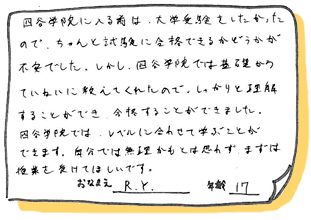 四谷学院に入る前は、大学受験をしたかった
ので、ちゃんと試験に合格できるかどうかが
不安でした。しかし、四谷学院では基礎から
ていねいに教えてくれたので、しっかりと理解
することができ、合格することができました。
四谷学院では、レベルに合わせて学ぶことが
できます。自分では無理かもとは思わず、まずは
授業を受けてほしいです。
おなまえ R.Y. 年齢 17